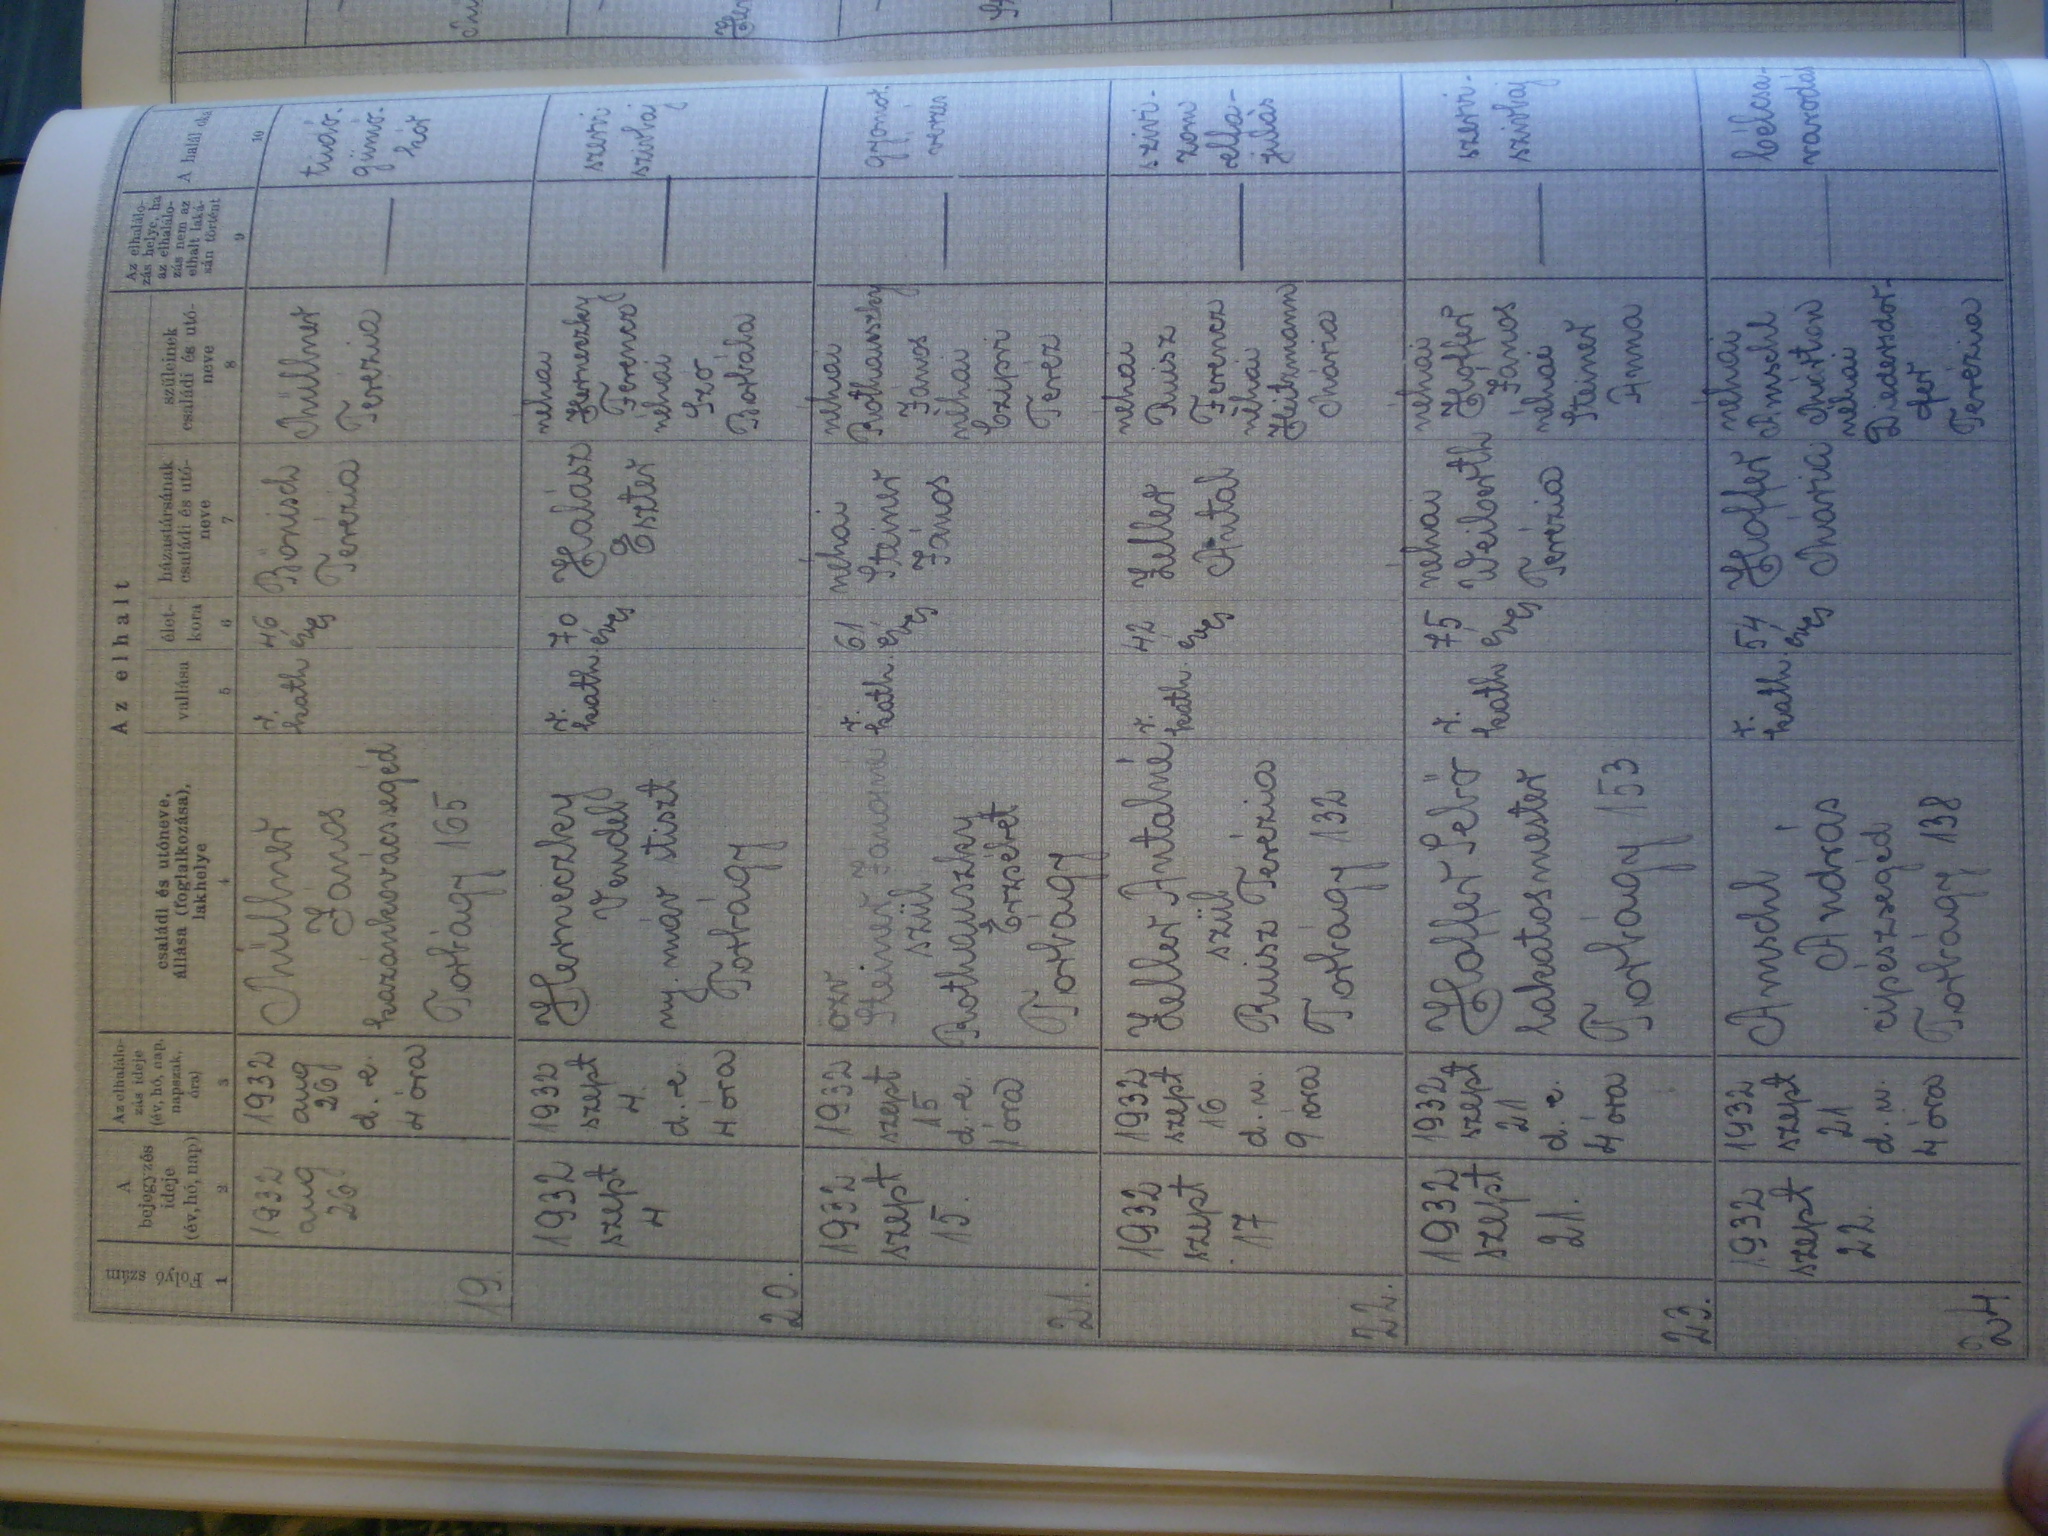 Az elhalt
Folyó szám
A bejegyzés ideje (év, hó, nap)
Az elhalálo-
zás ideje
(év, hó, nap,
napszak,
óra)
családi és utóneve,
állása (foglalkozása),
lakhelye
vallása
élet-
kora
házastársának
családi és utó-
neve
szüleinek
családi és utó-
neve
Az elhalálo-
zás helye, ha
az elhalálo-
zás nem az
elhalt laká-
sán történt
A halál oka
1 2 3 4 5 6 7 8 9 10
19.
1932
aug
26
1932
aug
26
d. e.
4 óra
Müllner
János
kazánkovácssegéd
Torbágy 165
r.
kath
46
éves
Bönisch
Terézia
Müllner
Terézia
tüdő-
gümő-
kór
20.
1932
szept
4
1932
szept
4.
d. e.
4 óra
Herneczky
Vendel
ny. máv tiszt
Torbágy
r.
kath.
70
éves
Halász
Eszter
néhai
Herneczky
Ferencz
néhai
Szo
Borbála
szervi
szívbaj
21.
1932
szept
15.
1932
szept
15
d. e.
1 óra
özv
Steiner Jánosné
szül
Rothauszky
Erzsébet
Torbágy
r.
kath.
61
éves
néhai
Steiner
János
néhai
Rothauszky
János
néhai
Czipri
Teréz
gyomor
vérzés
22.
1932
szept
17
1932
szept
16
d. u.
9 óra
Zeller Antalné
szül
Ruisz Terézia
Torbágy 132
r.
kath.
42
éves
Zeller
Antal
néhai
Ruisz
Ferencz
néhai
Heilmann
Mária
szívi-
zom
elfa-
julás
23.
1932
szept
21.
1932
szept
21
d. e.
4 óra
Hoffer Sebő
lakatosmester
Torbágy 153
r.
kath
75
éves
néhai
Weiberth
Terézia
néhai
Hoffer
János
néhai
Steiner
Anna
szervi-
szívbaj
24
1932
szept
22.
1932
szept
21
d. u.
4 óra
Amschl
András
cipészsegéd
Torbágy 138
r.
kath.
54
éves
Hoffer
Mária
néhai
Amschl
Márton
néhai
Diedersdor-
fer
Terézia
bélcsa-
varodás